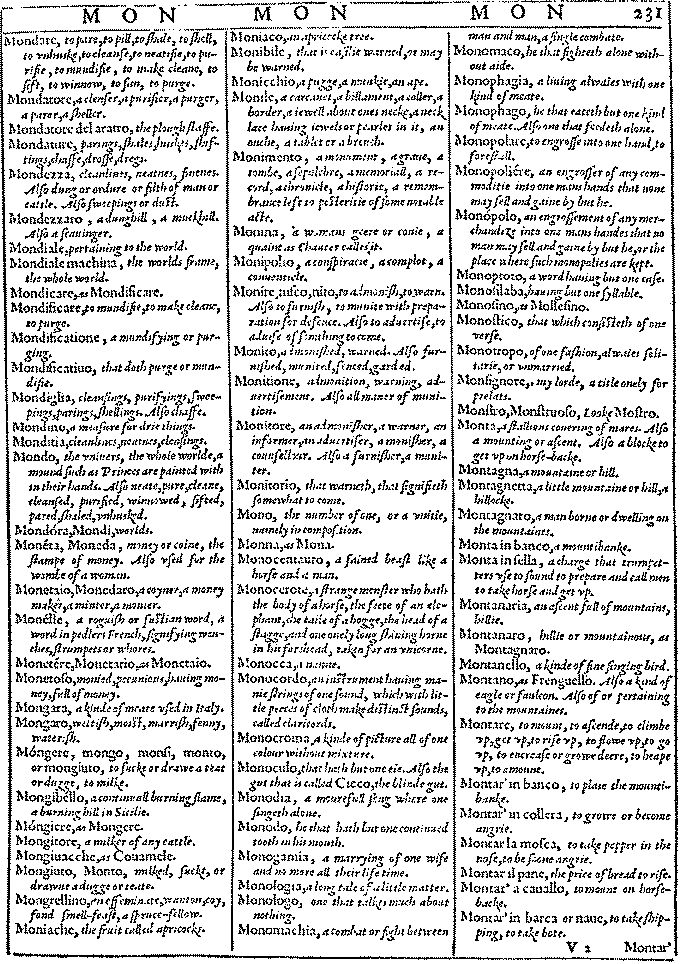 M O N M O N M O N 231
Mondare, to pare, to pill, to shale, to shell,
to vnhuske, to cleanse, to neatifie, to pu-
rifie, to mundifie, to make cleane, to
sift, to winnow, to fan, to purge.
Mondatore, a clenser, a purifier, a purger,
a parer, a sheller.
Mondatore del aratro, the plough staffe.
Mondature, parings, shales, huskes, shif-
tings, chaffe, drosse, dregs.
Mondezza, cleanlines, neatnes, finenes.
Also dung or ordure or filth of man or
cattle. Also sweepings or dust.
Mondezzaro, a dunghill, a muckhill.
Also a scauinger.
Mondiale, pertaining to the world.
Mondiale machina, the worlds frame,
the whole world.
Mondicare, as Mondificare.
Mondificare, to mundifie, to make cleane,
to purge.
Mondificatione, a mundifying or pur-
ging.
Mondificatiuo, that doth purge or mun-
difie.
Mondiglia, cleansings, purifyings, swee-
pings, parings, shellings. Also chaffe.
Mondino, a measure for drie things.
Monditia, cleanlines, neatnes, clensings.
Mondo, the vniuers, the whole worlde, a
mound such as Princes are painted with
in their hands. Also neate, pure, cleane,
cleansed, purified, winnowed, sifted,
pared, shaled, vnhusked.
Mondóra, Mondi, worlds.
Monéta, Moneda, money or coine, the
stampe of money. Also vsed for the
wombe of a woman.
Monetaio, Monedaro, a coyner, a money
maker, a minter, a monier.
Monélle, a roguish or fustian word, a
word in pedlers French, signifying wen-
ches, strumpets or whores.
Monetére, Monetario, as Monetaio.
Monetoso, monied, pecunious, hauing mo-
ney, full of money.
Mongara, a kinde of meate vsed in Italy.
Mongaro, wettish, moist, marrish, fenny,
waterish.
Móngere, mongo, monsi, monto,
or mongiuto, to sucke or drawe a teat
or dugge, to milke.
Mongibello, a continuall burning flame,
a burning hill in Sicilie.
Móngiere, as Mongere.
Mongitore, a milker of any cattle.
Mongiuacche, as Couamele.
Mongiuto, Monto, milked, suckt, or
drawne a dugge or teate.
Mongrellino, an effeminate, wanton, coy,
fond smell-feast, a spruce-fellow.
Moniache, the fruit called apricocks.
Moniaco, an apricocke tree.
Monibile, that is easilie warned, or may
be warned.
Monicchio, a pugge, a munkie, an ape.
Monile, a carcanet, a billament, a coller, a
border, a iewell about ones necke, a neck
lace hauing iewels or pearles in it, an
ouche, a tablet or a brouch.
Monimento, a monument, a graue, a
tombe, a sepulchre, a memoriall, a re-
cord, a chronicle, a historie, a remem-
brance left to posteritie of some notable
acte.
Monina, a womans geere or conie, a
quaint as Chaucer calles it.
Monipolio, a conspiracie, a complot, a
conuenticle.
Monire, nisco, nito, to admonish, to warn.
Also to furnish, to munite with prepa-
ration for defence. Also to aduertise, to
aduise of somthing to come.
Monito, admonished, warned. Also fur-
nished, munited, fenced, garded.
Monitione, admonition, warning, ad-
uertisement. Also all maner of muni-
tion.
Monitore, an admonisher, a warner, an
informer, an aduertiser, a monisher, a
counsellor. Also a furnisher, a muni-
ter.
Monitorio, that warneth, that signifieth
somewhat to come.
Mono, the number of one, or a vnitie,
namely in composition.
Monna, as Mona.
Monocentauro, a fained beast like a
horse and a man.
Monocerote, a strange monster who hath
the body of a horse, the feete of an ele-
phant, the taile of a hogge, the head of a
stagge, and one onely long shining horne
in his forehead, taken for an vnicorne.
Monocca, a name.
Monocordo, an instrument hauing ma-
nie strings of one sound, which with lit-
tle peeces of cloth make distinct sounds,
called claricords.
Monocroma, a kinde of picture all of one
colour without mixture.
Monoculo, that hath but one eie. Also the
gut that is called Cieco, the blinde gut.
Monodia, a mournfull song where one
singeth alone.
Monodo, he that hath but one continued
tooth in his mouth.
Monogamia, a marrying of one wife
and no more all their life time.
Monologia, a long tale of a little matter.
Monologo, one that talkes much about
nothing.
Monomachia, a combat or fight between
man and man, a single combate.
Monomaco, he that fighteth alone with-
out aide.
Monophagia, a liuing alwaies with one
kind of meate.
Monophago, he that eateth but one kind
of meate. Also one that feedeth alone.
Monopolare, to engrosse into one hand, to
forestall.
Monopoliére, an engrosser of any com-
moditie into one mans hands that none
may sell and gaine by but he.
Monópolo, an engrossement of any mer-
chandize into one mans handes that no
man may sell and gaine by but he, or the
place where such monopolies are kept.
Monoptoto, a word hauing but one case.
Monosilaba, hauing but one syllable.
Monosino, as Mollesino.
Monostico, that which consisteth of one
verse.
Monotropo, of one fashion, alwaies soli-
tarie, or vnmarried.
Monsignore, my lorde, a title onely for
prelats.
Monstro, Monstruoso, Looke Mostro.
Monta, a stallions couering of mares. Also
a mounting or ascent. Also a blocke to
get vp on horse-backe.
Montagna, a mountaine or hill.
Montagnetta, a little mountaine or hill, a
hillocke.
Montagnaro, a man borne or dwelling on
the mountaines.
Monta in banco, a mountibanke.
Monta in sella, a charge that trumpet-
ters vse to sound to prepare and call men
to take horse and get vp.
Montanaria, an ascent full of mountaines,
hillie.
Montanaro, hillie or mountainous, as
Montagnaro.
Montanello, a kinde of fine singing bird.
Montano, as Frenguello. Also a kind of
eagle or faulcon. Also of or pertaining
to the mountaines.
Montare, to mount, to ascende, to climbe
vp, get vp, to rise vp, to flowe vp, to go
vp, to encrease or growe deere, to heape
vp, to amount.
Montar' in banco, to plaie the mounti-
banke.
Montar' in collera, to growe or become
angrie.
Montar la mosca, to take pepper in the
nose, to be soone angrie.
Montar il pane, the price of bread to rise.
Montar' a cauallo, to mount on horse-
backe.
Montar' in barca or naue, to take ship-
ping, to take bote.
V 2 Montar'